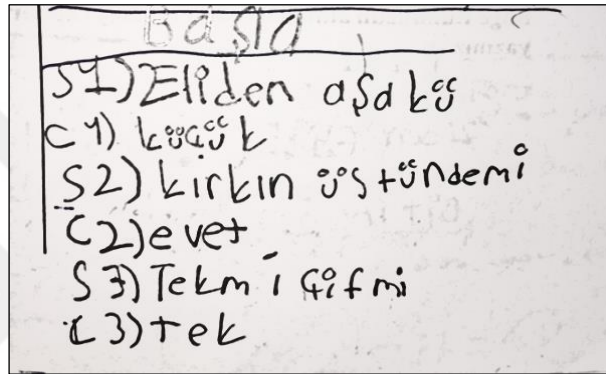 Başla
S1) Eliden aşakü
C1) küçük
S2) kirkin üstündemi
C2) evet
S3) Tekmi çifmi
C3) tek